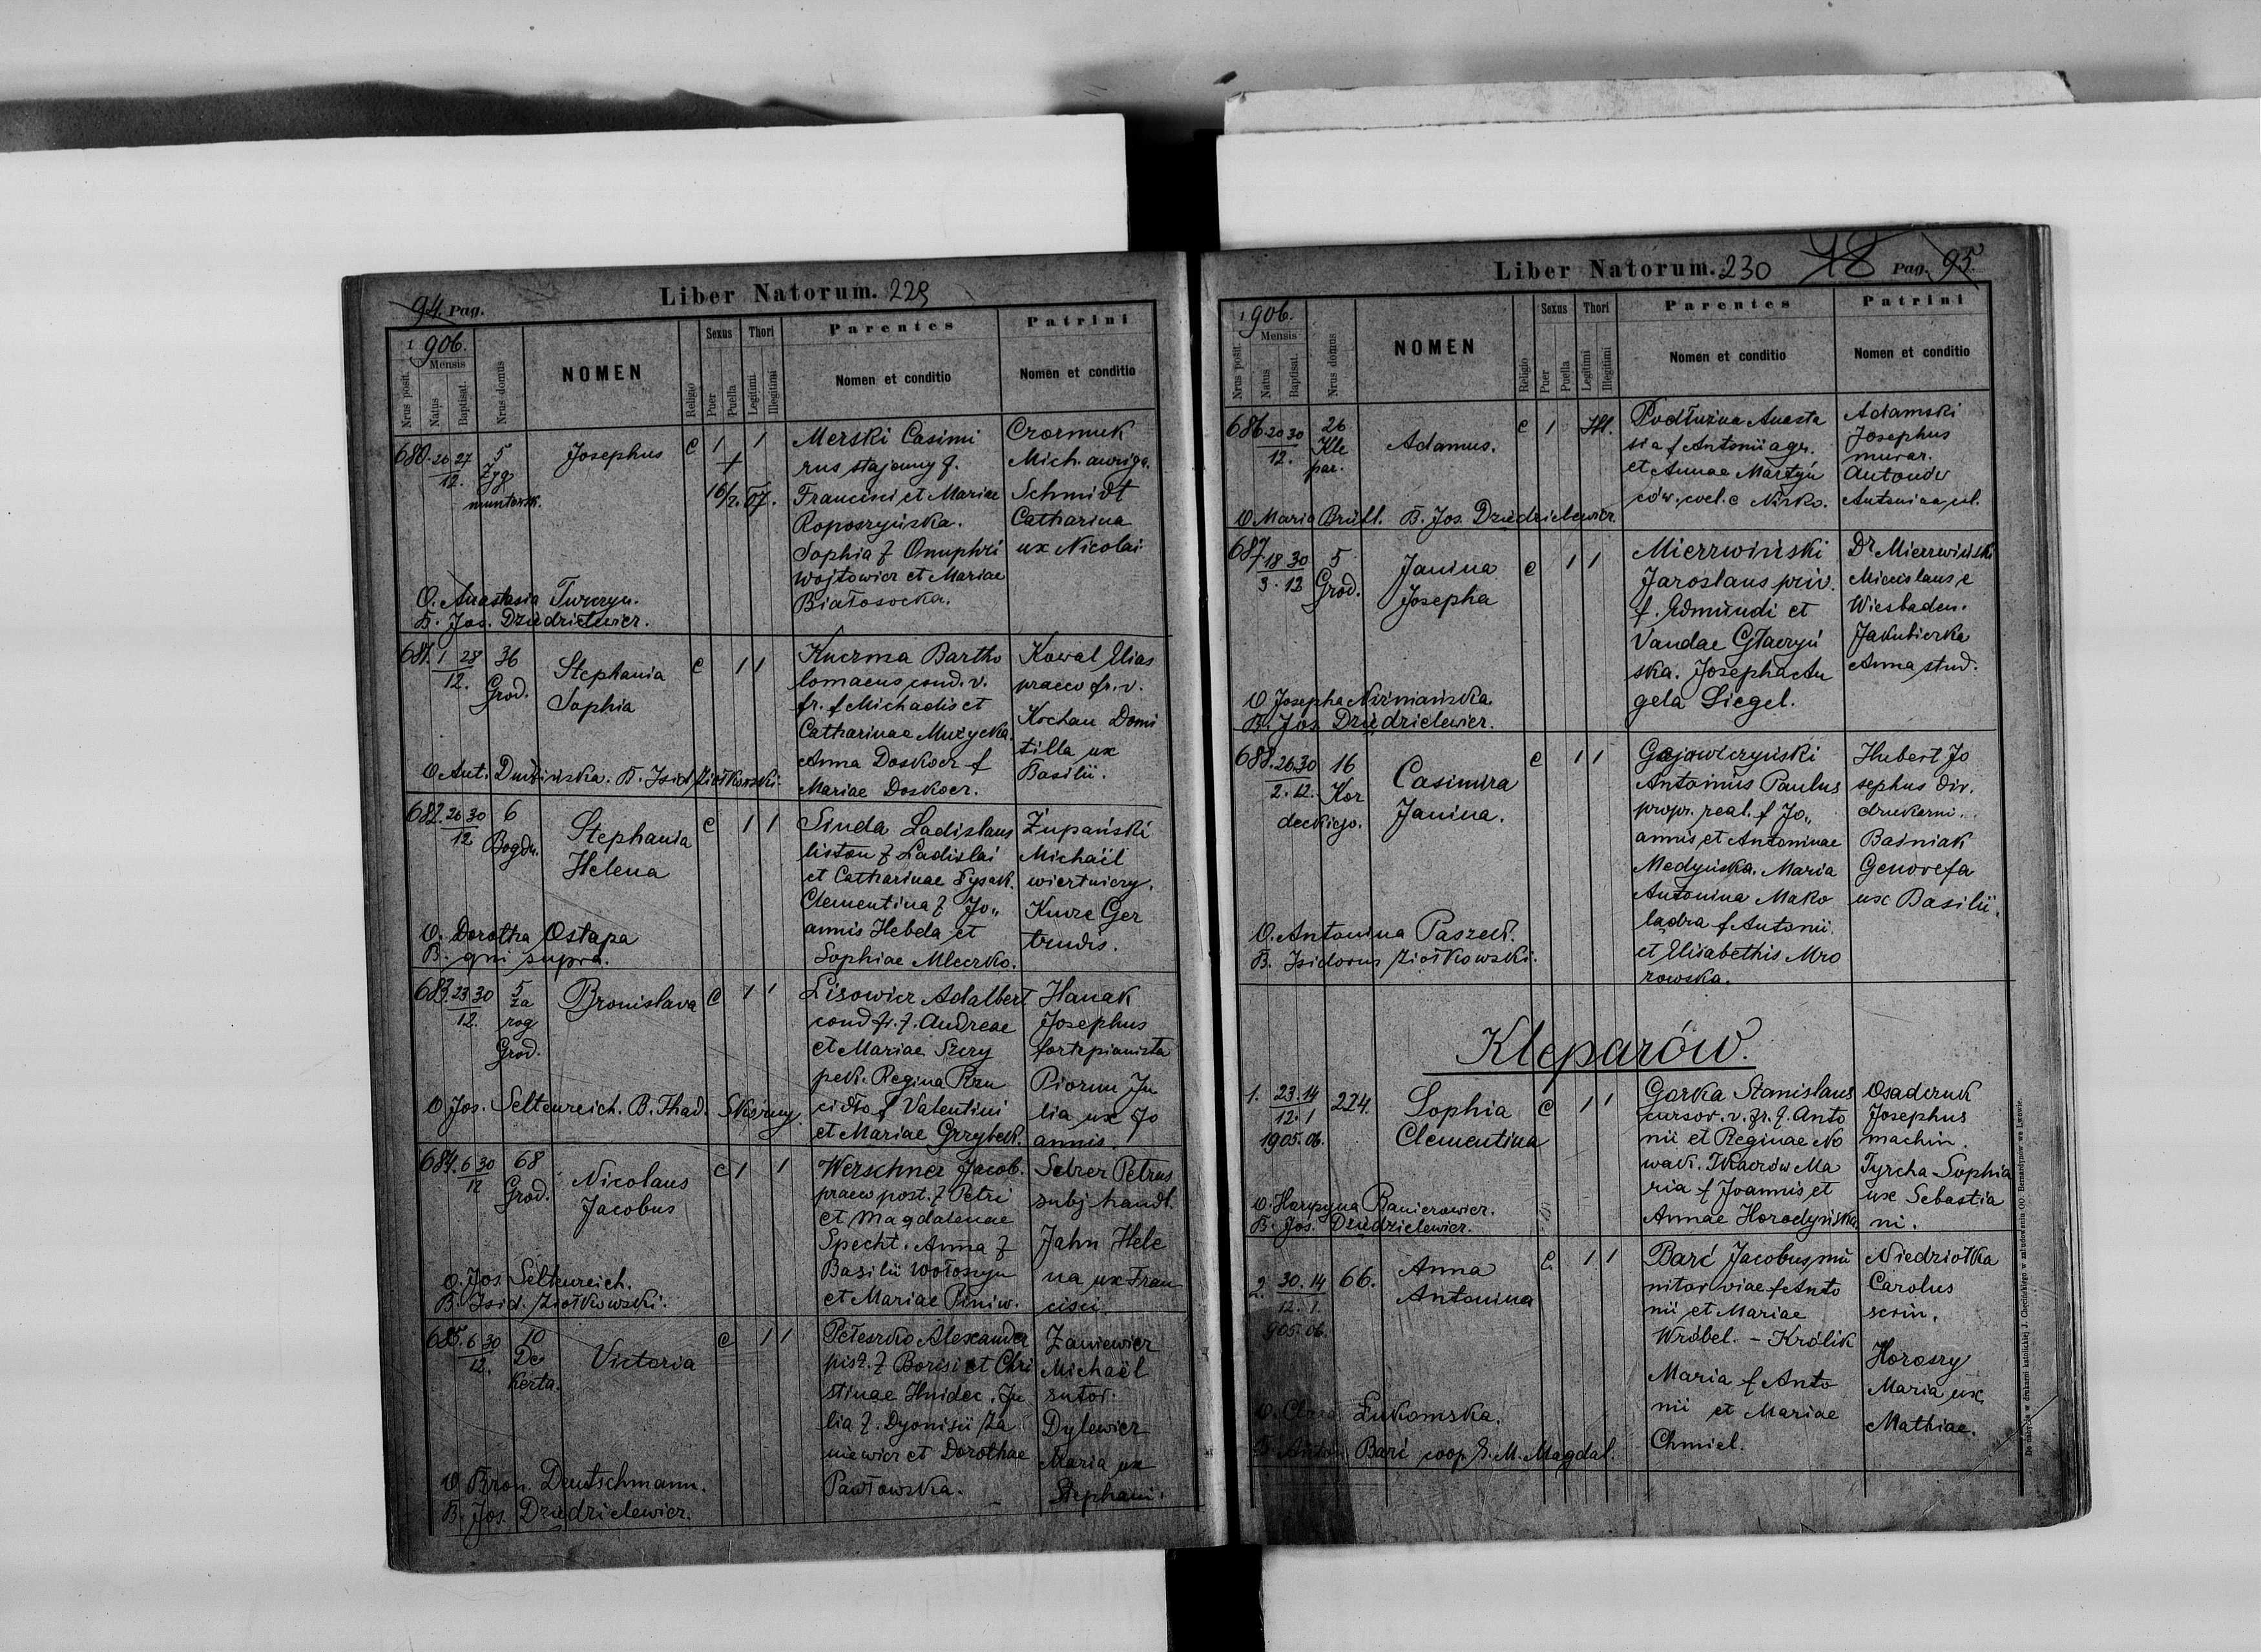 94. Pag.
Liber Natorum. 229
1906.
Nrus posit.
Mensis
Natus
Baptisat.
Nrus domus
NOMEN
Religio
Sexus
Puer
Puella
Thori
Legitimi
Illegitimi
Parentes
Nomen et conditio
Patrini
Nomen et conditio
680. 26 27
12.
5
Zyg
muntowsk.
Josephus
c 1 1
+
16/2. 07.
Merski Casimi
rus stajenny f.
Francisci et Mariae
Roposzyńska.
Sophia f Onuphri
Wojtowicz et Mariae
Białosocka.
Czormuk
Mich. auriga.
Schmidt
Catharina
ux Nicolai
O. Anastasia Turczyn.
B. Jos. Dziedzielewicz.
681. 1 28
12.
36
Grod.
Stephania
Sophia
c 1 1
Kuczma Bartho
lomaeus cond. v.
fr. f Michaelis et
Catharinae Muzycka.
Anna Doskocz f
Mariae Doskocz.
Kowal Elias
praeco fr. v.
Kochan Domi
tilla ux
Basilii.
O Ant. Dudzińska. B. Isid. Ziołkowski.
682. 26 30
12
6
Bogdn.
Stephania
Helena
c 1 1
Sinda Ladislaus
liston f Ladislai
et Catharinae Łysak.
Clementina f Jo„
annis Hebda et
Sophiae Mleczko.
Żupański
Michaël
wiertniczy.
Kunze Ger
trudis.
O. Dorothea Ostapa
B. qui supra.
683. 23 30
12.
5
za
rog
Grod.
Bronislava
c 1 1
Lisowicz Adalbert
cond fr. f. Andreae
et Mariae Szczy
pek. Regina Rzu
cidło f Valentini
et Mariae Grzybek.
Hanak
Josephus
fortepianista
Piorun Ju
lia ux Jo
annis
O Jos. Seltenreich. B. Thad. Skórny.
684. 6 30
12
68
Grod.
Nicolaus
Jacobus
c 1 1
Werschner Jacob.
praeco post. f Petri
et Magdalenae
Specht. Anna f
Basilii Wołoszyn
et Mariae Piniw.
Selzer Petrus
subj. handl.
Jahn Hele
na ux Fran
cisci
O. Jos Seltenreich.
B. Isid. Ziołkowski.
685. 6 30
12.
10
De
kerta.
Victoria
c 1 1
Pełeszko Alexander
pist. f Borisi et Chri
stinae Hnidec. Ju
lia f. Dyonisii Za
niewicz et Dorothae
Pawłowska.
Zaniewicz
Michaël
sutor.
Dylewicz
Maria ux
Stephani.
O Bron. Deutschmann.
B. Jos. Dziedzielewicz.
Liber Natorum. 230
18
Pag. 95.
1906.
Nrus posit.
Mensis
Natus
Baptisat.
Nrus domus
NOMEN
Religio
Sexus
Puer
Puella
Thori
Legitimi
Illegitimi
Parentes
Nomen et conditio
Patrini
Nomen et conditio
686. 20 30
12.
26
Kle
par.
Adamus.
c 1 Ill.
Podłużna Anasta
sia f Antonii agr.
et Annae Martyń
ców. coel. e Nisko.
Adamski
Josephus
murar.
Antonów
Antonina, cel.
O Maria Brühl. B. Jos. Dziedzielewicz.
687. 18 30
3. 12
5
Grod.
Janina
Josepha
c 1 1
Mierzwiński
Jaroslaus priv.
f. Edmundi et
Vandae Głaczyń
ska. Josepha An
gela Siegel.
Dr Mierzwiński
Miecislaus e
Wiesbaden.
Jakubiczka
Anna stud.
O Josepha Niżniańska
B. Jos. Dziedzielewicz.
688. 26. 30
2. 12.
16
Kor
deckiego.
Casimira
Janina.
c 1 1
Gajowczyński
Antonius Paulus
propr. real. f Jo„
annis et Antoninae
Medyńska. Maria
Antonina Mako
ladra f Antonii
et Elisabethis Mro
zowska.
Hubert Jo
sephus dir.
drukarni.
Baśniak
Genovefa
ux Basilii.
O. Antonina Paszek.
B. Isidorus Ziołkowski.
Kleparów.
1. 23. 14
12. 1
1905. 06.
224.
Sophia
Clementina
c 1 1
Gorka Stanislaus
cursor. v. fr. f. Anto
nii et Reginae No
wak. Tkaczów Ma
ria f Joannis et
Annae Horodyńska.
Osadczuk
Josephus
machin.
Tyrcha Sophia
ux Sebastia
ni.
O. Harpyna Banierowicz.
B. Jos. Dziedzielewicz.
2. 30. 14
12. 1.
905. 06.
66.
Anna
Antonina
c 1 1
Barć Jacobus, mu
nitor viae f Anto
nii et Mariae
Wróbel. - Królik
Maria f Anto
nii et Mariae
Chmiel.
Niedziołka
Carolus
scrin.
Horoszy
Maria ux
Mathiae.
Łukomska.
B. Anton Barć coop. S. M. Magdal.
Do nabycia w drukarni katolickiej J. Chęcińskiego w zabudowaniu OO. Bernardynów we Lwowie.